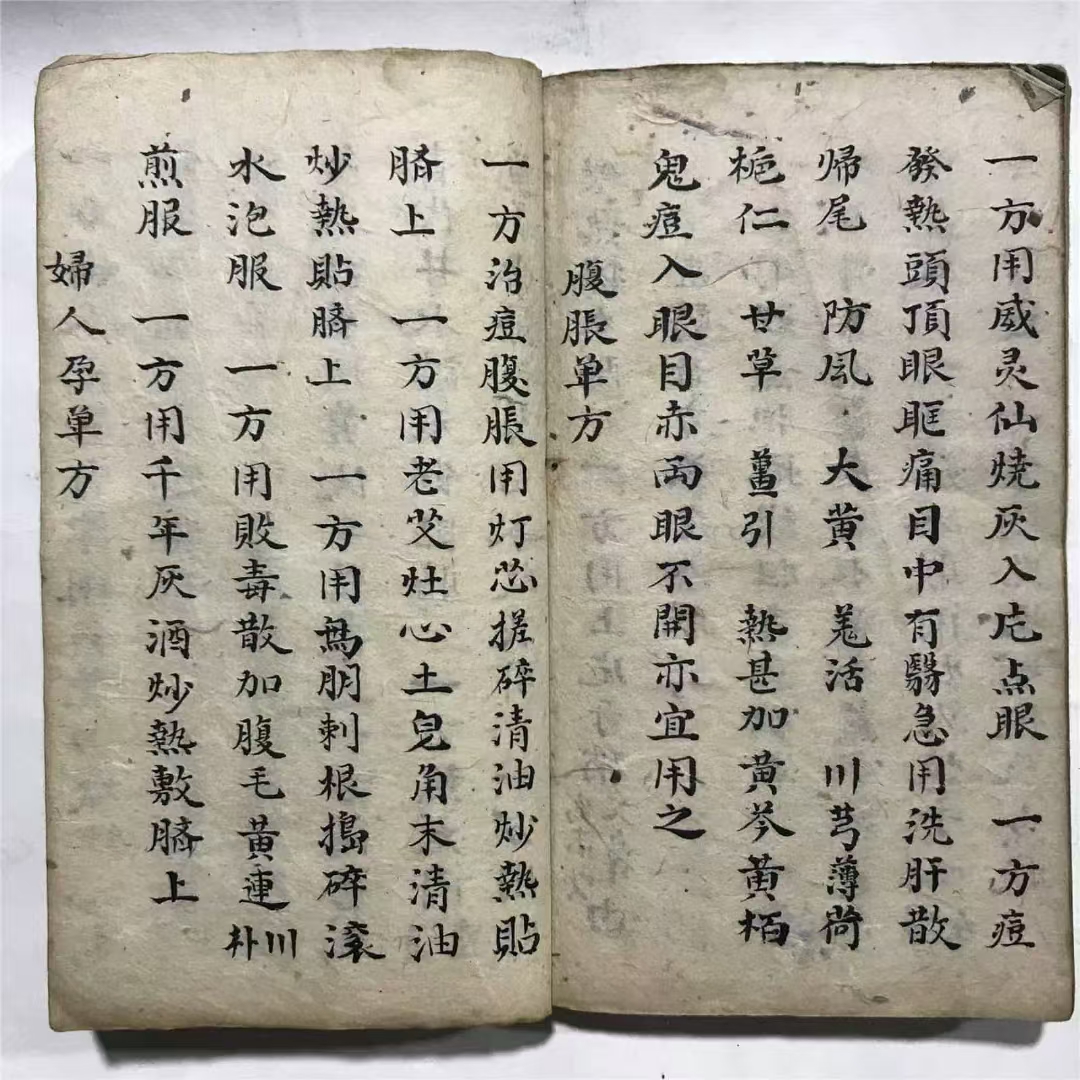 一方用威灵仙燒灰入疕点眼 一方痘
發熱頭頂眼眶痛目中有翳急用洗肝散
帰尾 防風 大黄 羗活 川芎薄荷
梔仁 甘草 薑引 熱甚加黄芩黄栢
鬼痘入眼目赤両眼不開亦宜用之
腹脹单方
一方治痘腹脹用灯芯搓碎清油炒熱貼
臍上 一方用老艾灶心土皂角末清油
炒熱貼臍上 一方用鳥朋刺根搗碎滾
水泡服 一方用敗毒散加腹毛黄連川朴
煎服 一方用千年灰酒炒熱敷臍上
婦人孕单方